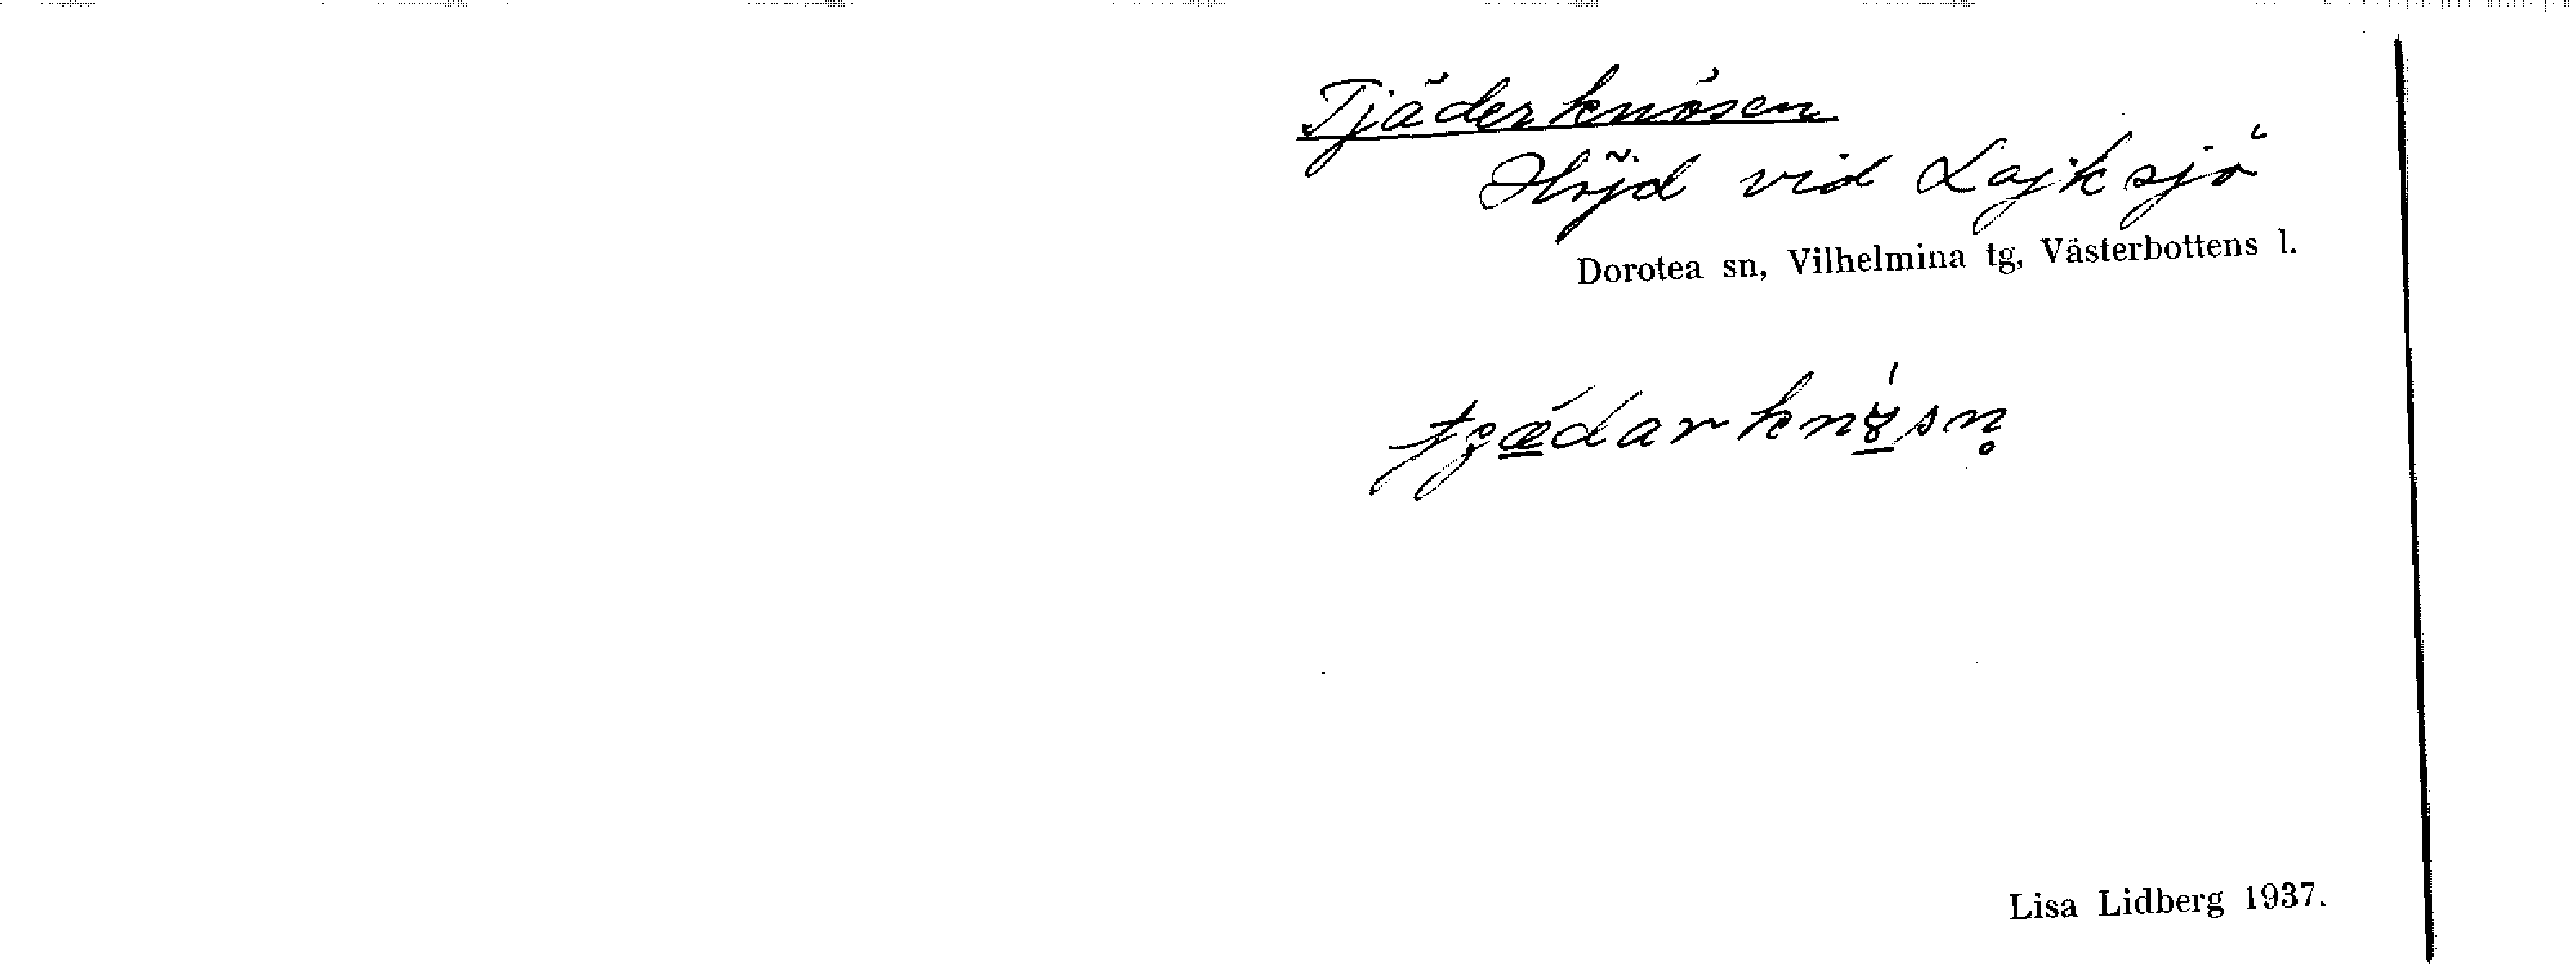 Tjäderknösen
Höjd vid Lajksjö
Dorotea sn, Vilhelmina tg, Västerbottens l.
Lisa Lidberg 1937.